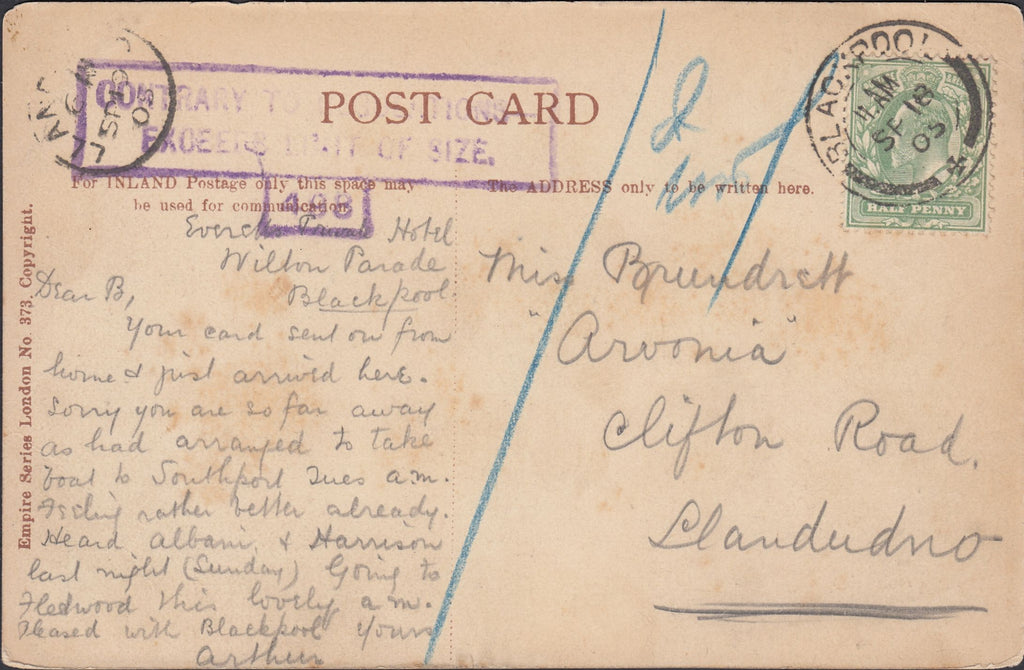 BLACKPOOL
11. AM
SP 18
05
4
HALF PENNY
LLAN
SP 19
05
CONTRARY TO REGULATIONS
EXCEEDS LIMIT OF SIZE.
POST CARD
For INLAND Postage only this space may
be used for communication.
The ADDRESS only to be written here.
Empire Series London No. 373. Copyright.
Hotel
Wilton Parade
Blackpool
Dear B,
Your card sent on from
home & just arrived here.
Sorry you are so far away
as had arranged to take
boat to Southport Tues a.m.
Feeling rather better already.
Heard Albani & Harrison
last night (Sunday) Going to
Fleetwood this lovely a.m.
Pleased with Blackpool Yours
Arthur
Miss Brundrett
"Arvonia"
Clifton Road.
Llandudno